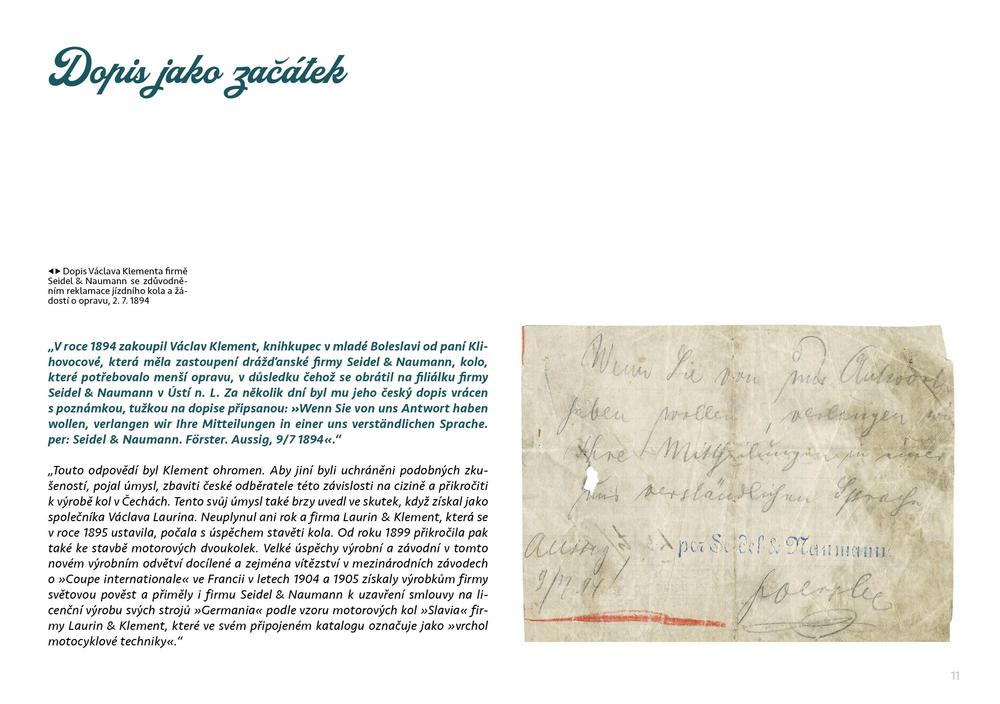 Dopis jako začátek
◂▸ Dopis Václava Klementa firmě
Seidel & Naumann se zdůvodně-
ním reklamace jízdního kola a žá-
dostí o opravu, 2. 7. 1894
„V roce 1894 zakoupil Václav Klement, knihkupec v mladé Boleslavi od paní Kli-
hovocové, která měla zastoupení drážďanské firmy Seidel & Naumann, kolo,
které potřebovalo menší opravu, v důsledku čehož se obrátil na filiálku firmy
Seidel & Naumann v Ústí n. L. Za několik dní byl mu jeho český dopis vrácen
s poznámkou, tužkou na dopise připsanou: »Wenn Sie von uns Antwort haben
wollen, verlangen wir Ihre Mitteilungen in einer uns verständlichen Sprache.
per: Seidel & Naumann. Förster. Aussig, 9/7 1894«.“
„Touto odpovědí byl Klement ohromen. Aby jiní byli uchráněni podobných zku-
šeností, pojal úmysl, zbaviti české odběratele této závislosti na cizině a přikročiti
k výrobě kol v Čechách. Tento svůj úmysl také brzy uvedl ve skutek, když získal jako
společníka Václava Laurina. Neuplynul ani rok a firma Laurin & Klement, která se
v roce 1895 ustavila, počala s úspěchem stavěti kola. Od roku 1899 přikročila pak
také ke stavbě motorových dvoukolek. Velké úspěchy výrobní a závodní v tomto
novém výrobním odvětví docílené a zejména vítězství v mezinárodních závodech
o »Coupe internationale« ve Francii v letech 1904 a 1905 získaly výrobkům firmy
světovou pověst a přiměly i firmu Seidel & Naumann k uzavření smlouvy na li-
cenční výrobu svých strojů »Germania« podle vzoru motorových kol »Slavia« fir-
my Laurin & Klement, které ve svém připojeném katalogu označuje jako »vrchol
motocyklové techniky«.“
Wenn Sie von uns Antwort
haben wollen, verlangen wir
Ihre Mittheilungen in einer
uns verständlichen Sprache
Aussig
per Seidel & Naumann
9/7 94
11